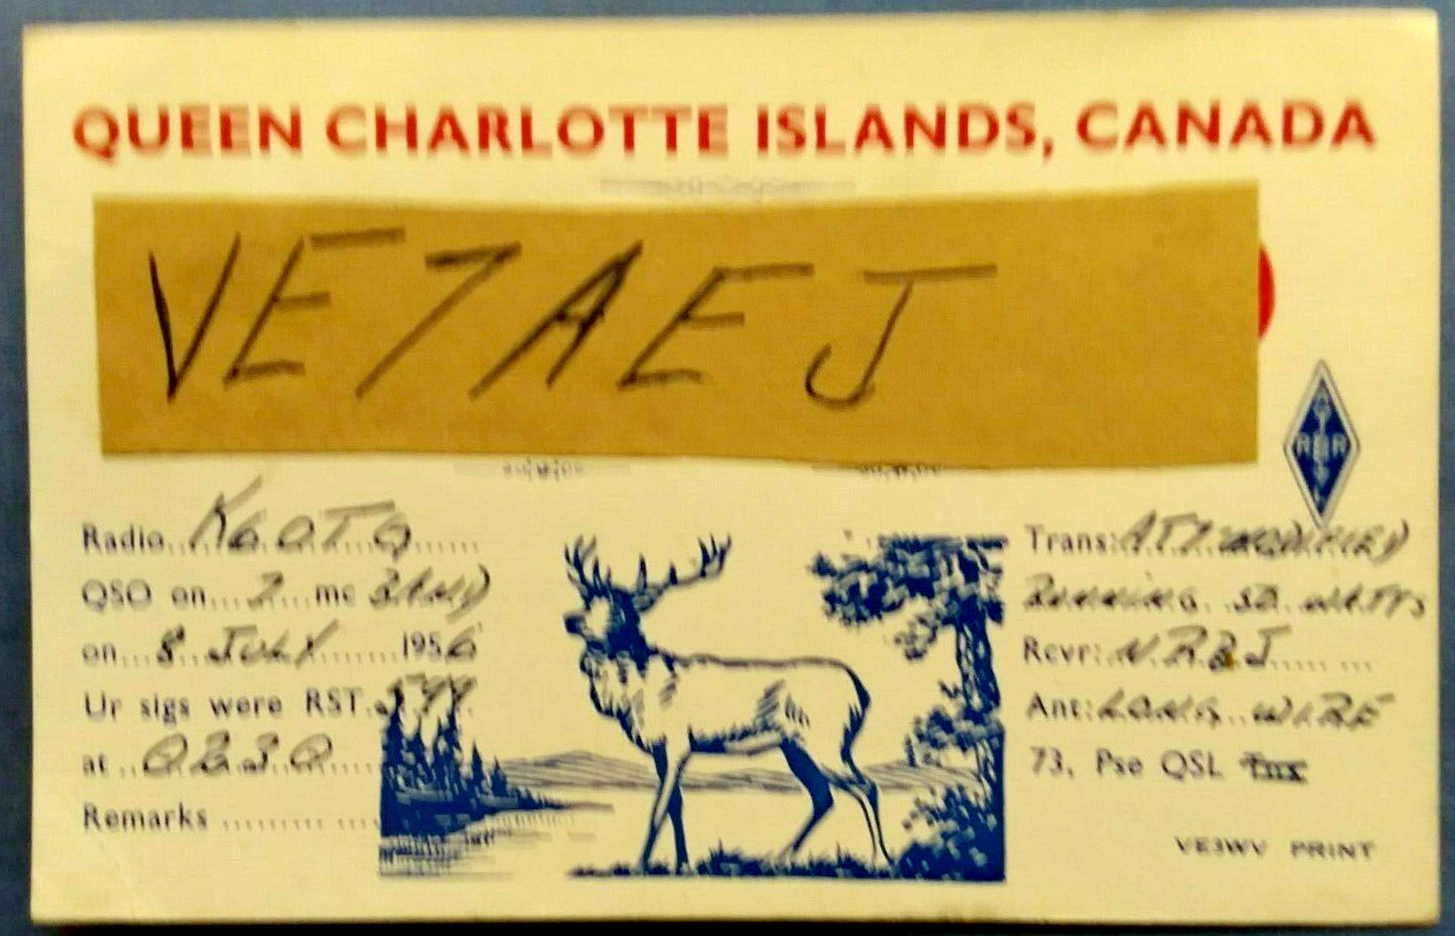 QUEEN CHARLOTTE ISLANDS, CANADA
VE7AEJ
Radio K6OTQ
QSO on 7 mc BAND
on 8 JULY 1956
Ur sigs were RST 599
at 0230
Remarks
Trans: AT7 MODIFIED
RUNNING 50 WATTS
Rcvr:
Ant: LONG WIRE
73, Pse QSL Tnx
VE3WV PRINT